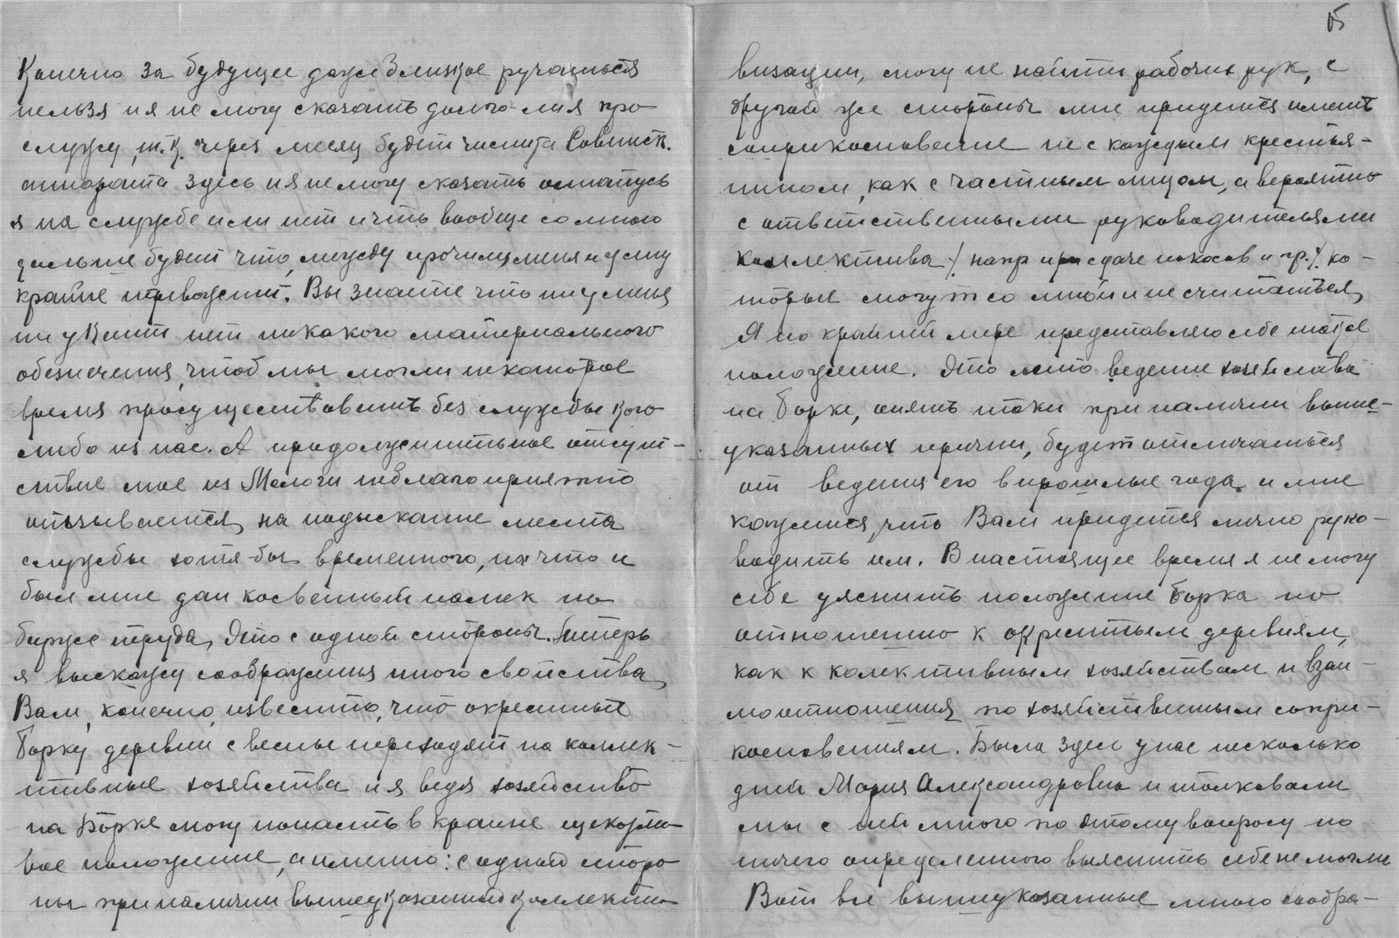 Конечно за будущее даже близкое ручаться
нельзя и я не могу сказать долго-ли я про-
служу, т.к. через месяц будет чистка Советск.
аппарата здесь и я не могу сказать останусь
я на службе или нет и что вообще со мною
дальше будет что, между прочим, меня и узму
крайне тревожит. Вы знаете что ни у меня
ни у Кити нет никакого материального
обезпечения, чтоб мы могли некоторое
время просуществовать без службы кого
либо из нас. А продолжительное отсут-
ствие мое из Мологи неблагоприятно
отзывается, на подыскание места
службы хотя-бы временного, на что и
был мне дан косвенный намек на
бирже труда, Это с одной стороны. Теперь
я выскажу соображения иного свойства,
Вам, конечно, известно, что окрестные
Борку деревни с весны переходят на коллек-
тивные хозяйства и я ведя хозяйство
на Борке могу попасть в крайне щекотли-
вое положение, а именно: с одной сторо-
ны при наличии вышеуказанной коллекти-
5
визации, могу не найти рабочих рук, с
другой же стороны мне придется иметь
соприкосновение не с каждым крестья-
нином, как с частным лицом, а вероятно
с ответственными руководителями
коллектива /. напр при сдаче покосов и пр./. ко-
торые могут со мной и не считаться,
Я по крайней мере представляю себе такое
положение. Это лето ведение хозяйства
на Борке, опять таки при наличии выше-
указанных причин, будет отличаться
от ведения его в прошлые года и мне
кажется, что Вам придется лично руко-
водить им. В настоящее время я не могу
себе уяснить положение Борка по
отношению к окрестным деревням,
как к колективным хозяйствам и взаи-
моотношения по хозяйственным сопри-
косновениям. Была здесь у нас несколько
дней Мария Александровна и толковали
мы с ней много по этому вопросу но
ничего определенного выяснить себе не могли
Вот все вышеуказанные мною сообра-